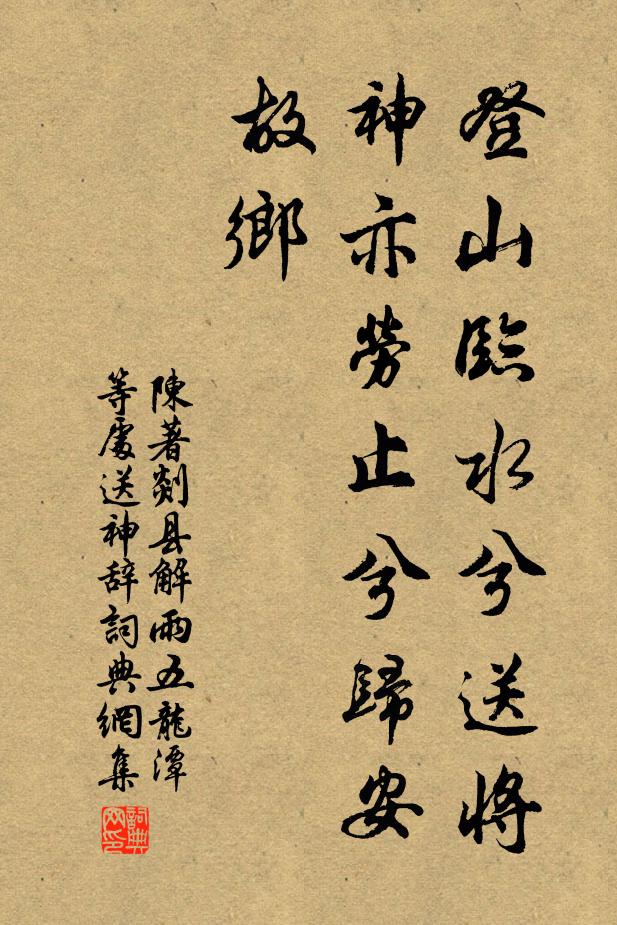 登山臨水兮送將
神亦勞止兮歸安
故鄉
陳著剡县解雨五龍潭
等處送神辞詞典網集
詞典网印